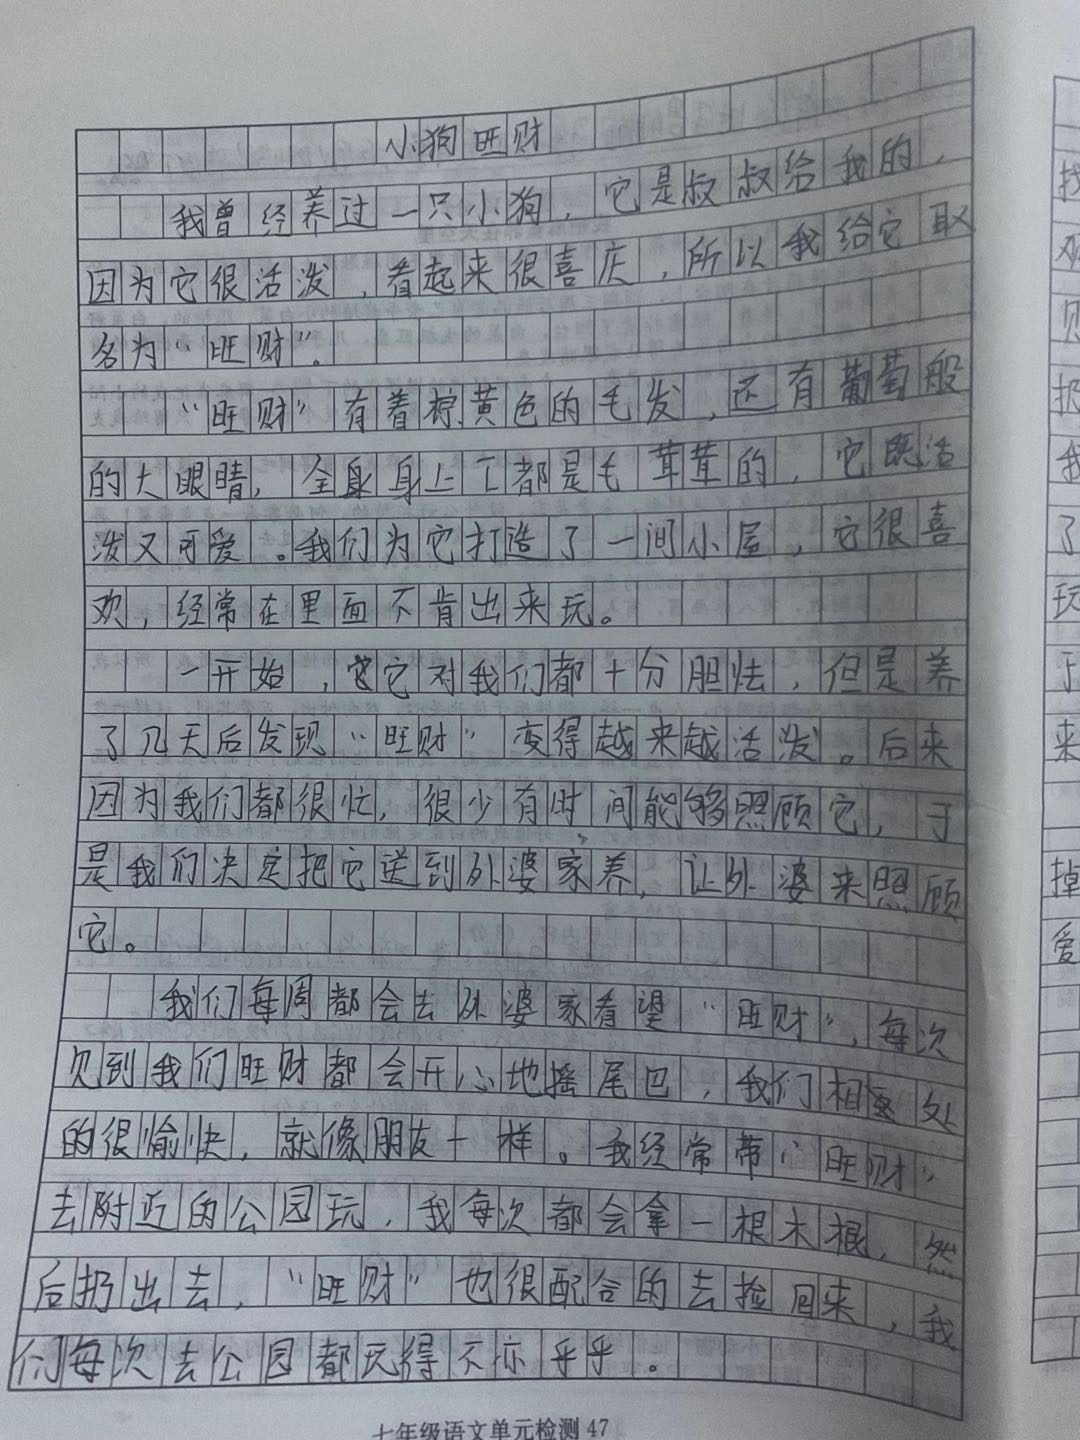 小狗旺财
我曾经养过一只小狗，它是叔叔给我的，
因为它很活泼，看起来很喜庆，所以我给它取
名为“旺财”。
“旺财”有着柠黄色的毛发，还有葡萄般
的大眼睛，全身身上下都是毛茸茸的，它既活
泼又可爱。我们为它打造了一间小屋，它很喜
欢，经常在里面不肯出来玩。
一开始，它对我们都十分胆怯，但是养
了几天后发现“旺财”变得越来越活泼。后来
因为我们都很忙，很少有时间能够照顾它，于
是我们决定把它送到外婆家养，让外婆来照顾
它。
我们每周都会去外婆家看望“旺财”，每次
见到我们旺财都会开心地摇尾巴，我们相处
的很愉快，就像朋友一样。我经常带“旺财”
去附近的公园玩，我每次都会拿一根木棍，然
后扔出去，“旺财”也很配合的去捡回来，我
们每次去公园都玩得不亦乎乎。
七年级语文单元检测 47
找
观
见
扔
我
了
玩
于
来
掉
爱